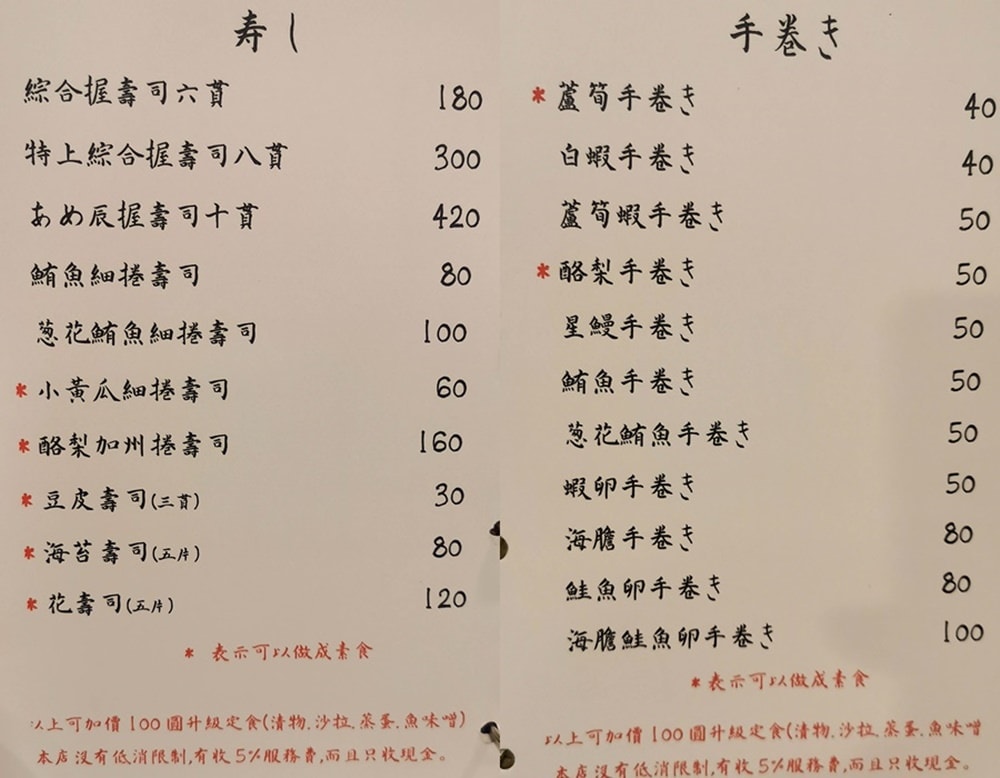 寿し
綜合握壽司六貫 180
特上綜合握壽司八貫 300
あめ辰握壽司十貫 420
鮪魚細捲壽司 80
葱花鮪魚細捲壽司 100
*小黃瓜細捲壽司 60
*酪梨加州捲壽司 160
*豆皮壽司(三貫) 30
*海苔壽司(五片) 80
*花壽司(五片) 120
*表示可以做成素食
以上可加價100圓升級定食(漬物.沙拉.蒸蛋.魚味噌)
本店沒有低消限制,有收5%服務費,而且只收現金。
手巻き
*蘆筍手巻き 40
白蝦手巻き 40
蘆筍蝦手巻き 50
*酪梨手巻き 50
星鰻手巻き 50
鮪魚手巻き 50
葱花鮪魚手巻き 50
蝦卵手巻き 50
海膽手巻き 80
鮭魚卵手巻き 80
海膽鮭魚卵手巻き 100
*表示可以做成素食
以上可加價100圓升級定食(漬物.沙拉.蒸蛋.魚味噌
本店沒有低消限制,有收5%服務費,而且只收現金。